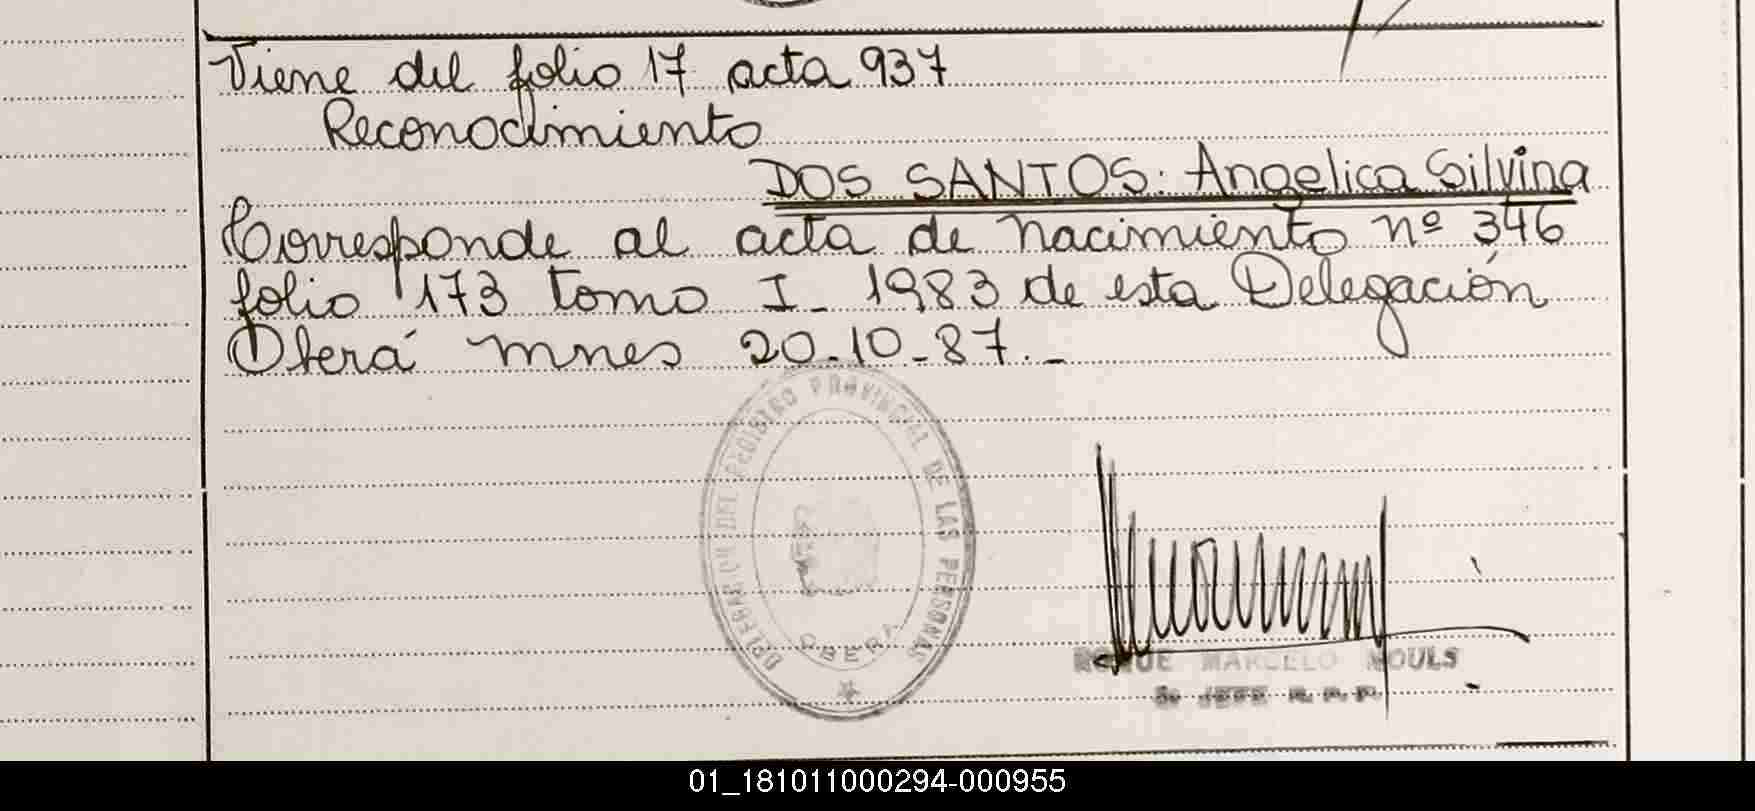 Viene del folio 17 acta 937
Reconocimiento
DOS SANTOS: Angelica Silvina
Corresponde al acta de nacimiento nº 346
folio 173 tomo I_ 1983 de esta Delegación
Oberá mnes 20-10-87._
DELEGACION DEL REGISTRO PROVINCIAL DE LAS PERSONAS
OBERA
ROQUE MARCELO MOULS
JEFE R.P.P.
01_181011000294-000955